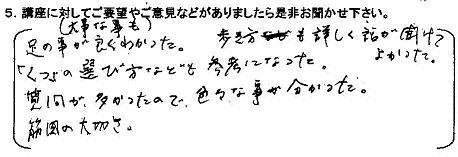 5. 講座に対してご要望やご意見などがありましたら是非お聞かせ下さい。
(大事な事も)
足の事が良くわかった。 歩き方も詳しく話が聞けてよかった。
「くつ」の選び方なども参考になった。
質問が多かったので、色々な事が分かった。
筋肉の大切さ。